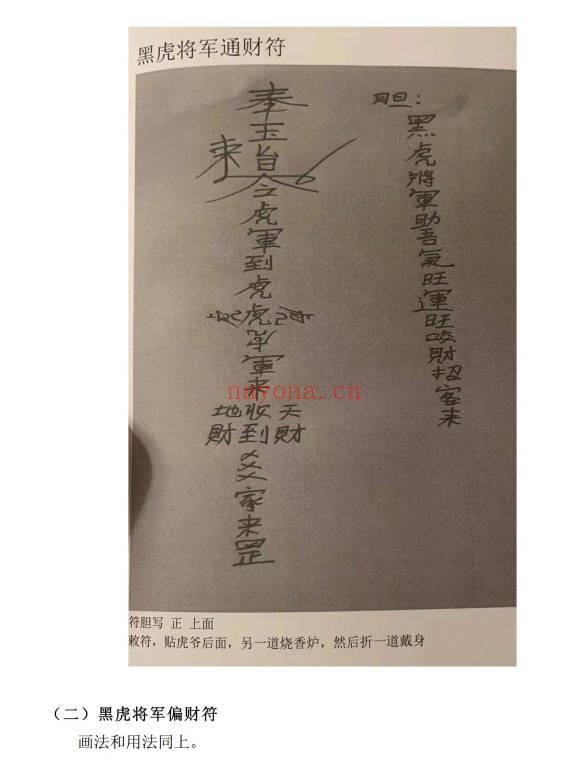 黑虎将军通财符
奉
玉
旨
来
令
虎
軍
到
虎
虎
軍
来
地收天
財到財
家
来
罡
胆：
黑虎將軍助吾氣旺運旺咬財招客来
nayona.cn
符胆写 正 上面
敕符，贴虎爷后面，另一道烧香炉，然后折一道戴身
（二）黑虎将军偏财符
画法和用法同上。